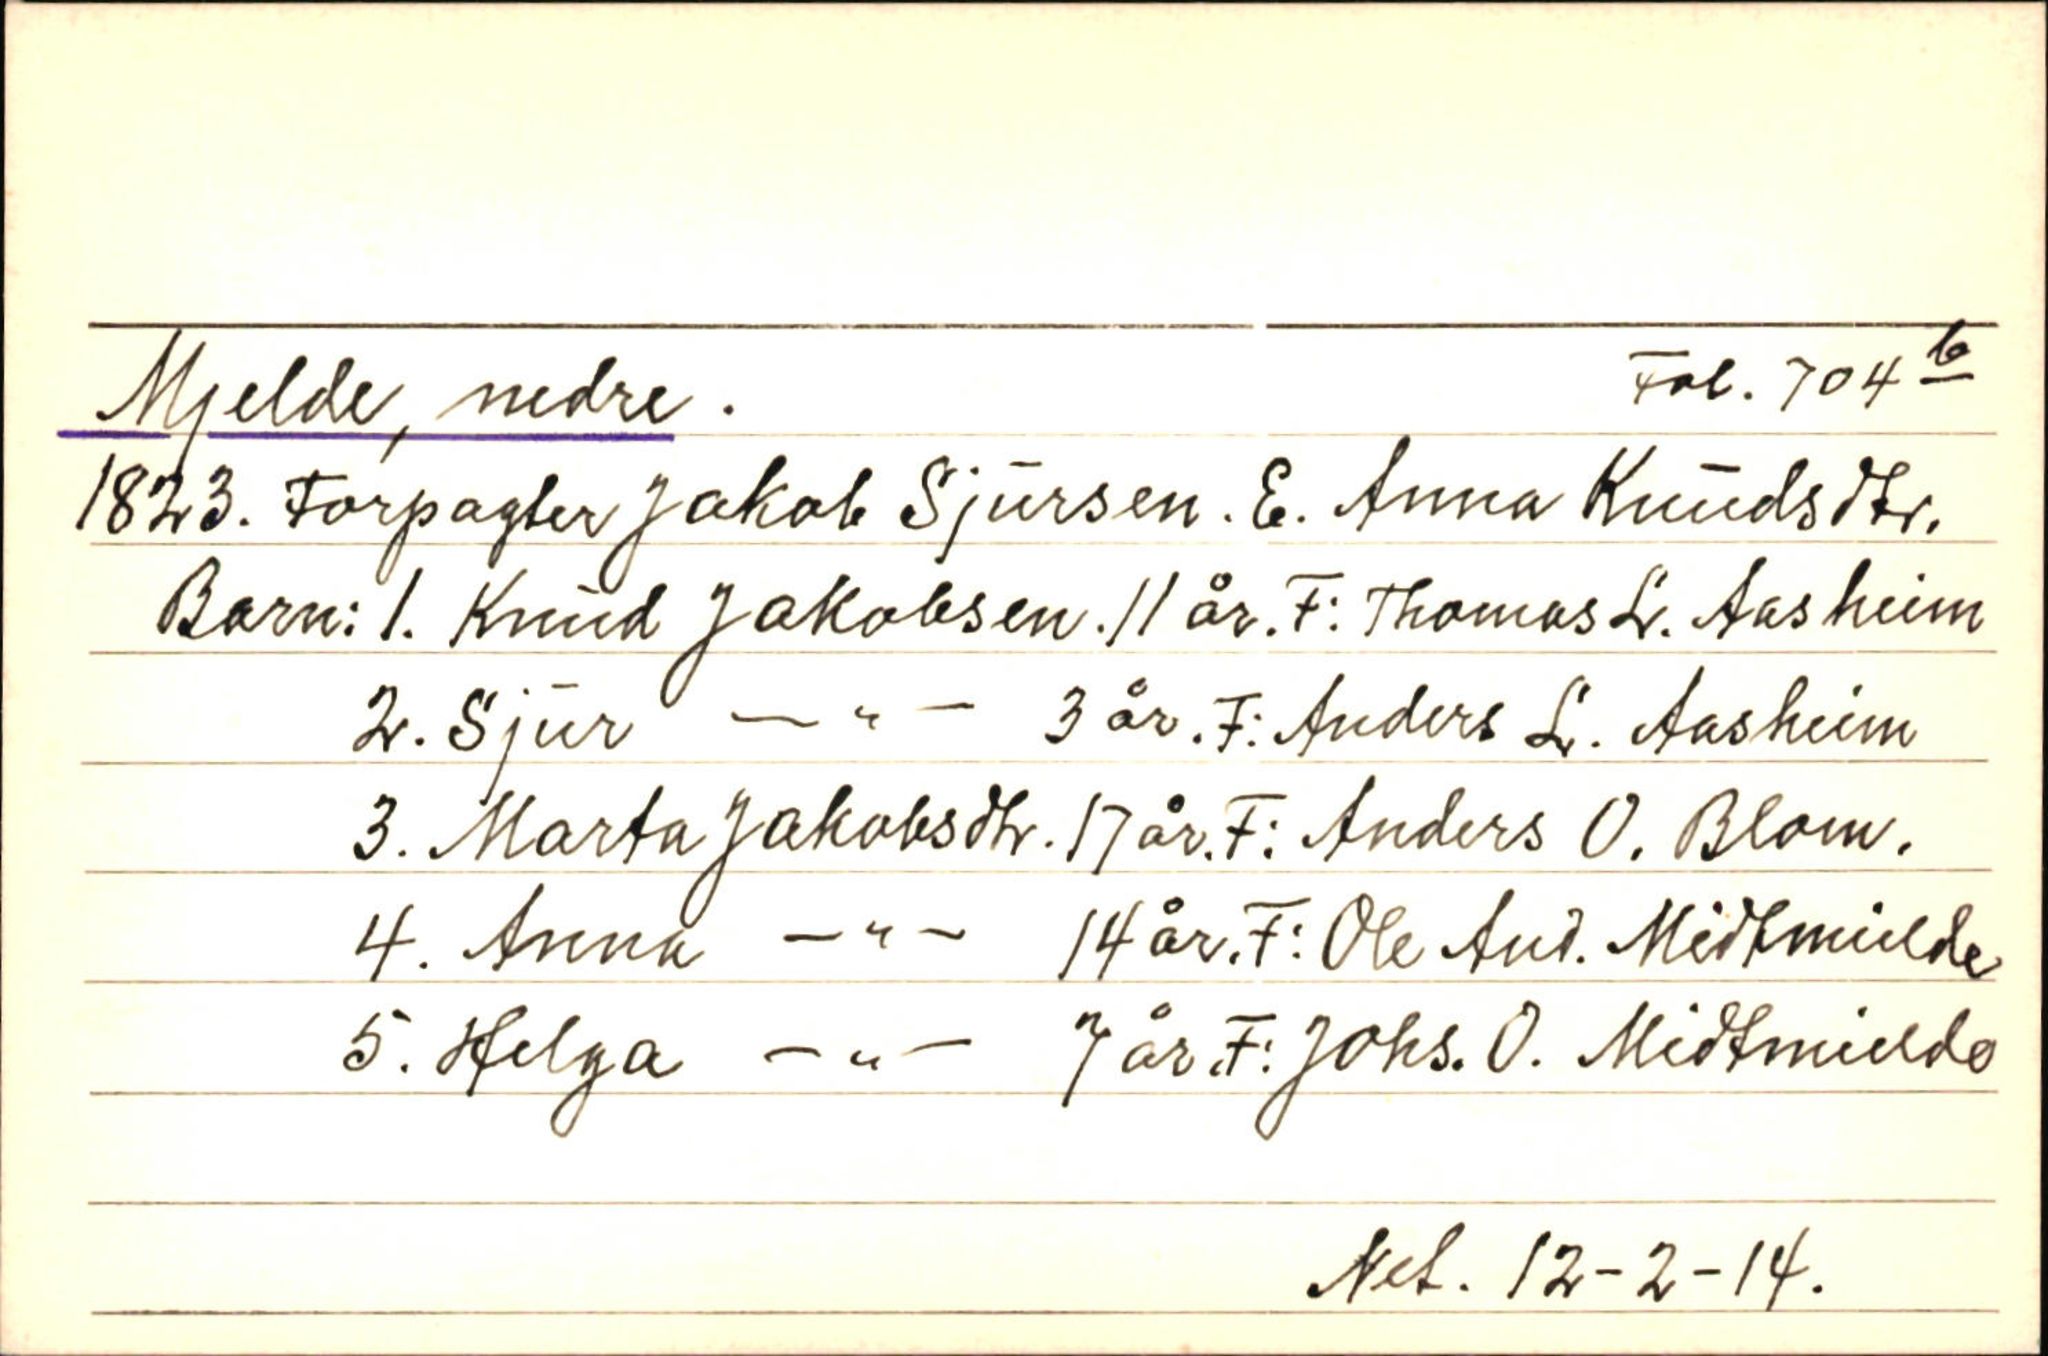 Mjelde, nedre. Fol. 704 b
1823. Forpagter Jakob Sjursen. E. Anna Knudsdtr.
Barn: 1. Knud Jakobsen. 11 år. F: Thomas L. Aasheim
2. Sjur — " — 3 år. F: Anders L. Aasheim
3. Marta Jakobsdtr. 17 år. F: Anders O. Blom.
4. Anna — " — 14 år. F: Ole And. Midtmielde
5. Helga — " — 7 år. F: Johs. O. Midtmielde
Net. 12-2-14.